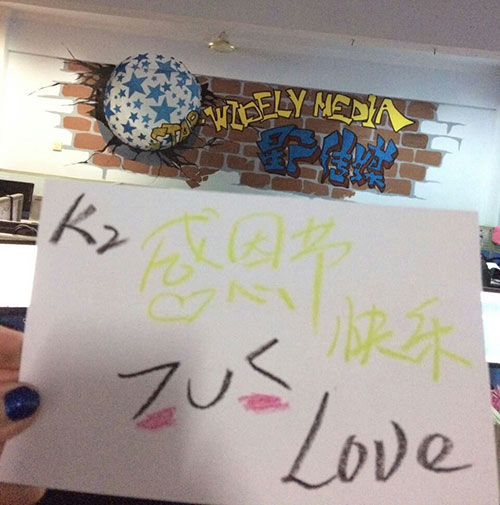 STAR WIDELY MEDIA
傳媒
K2 感恩节
快乐
Love